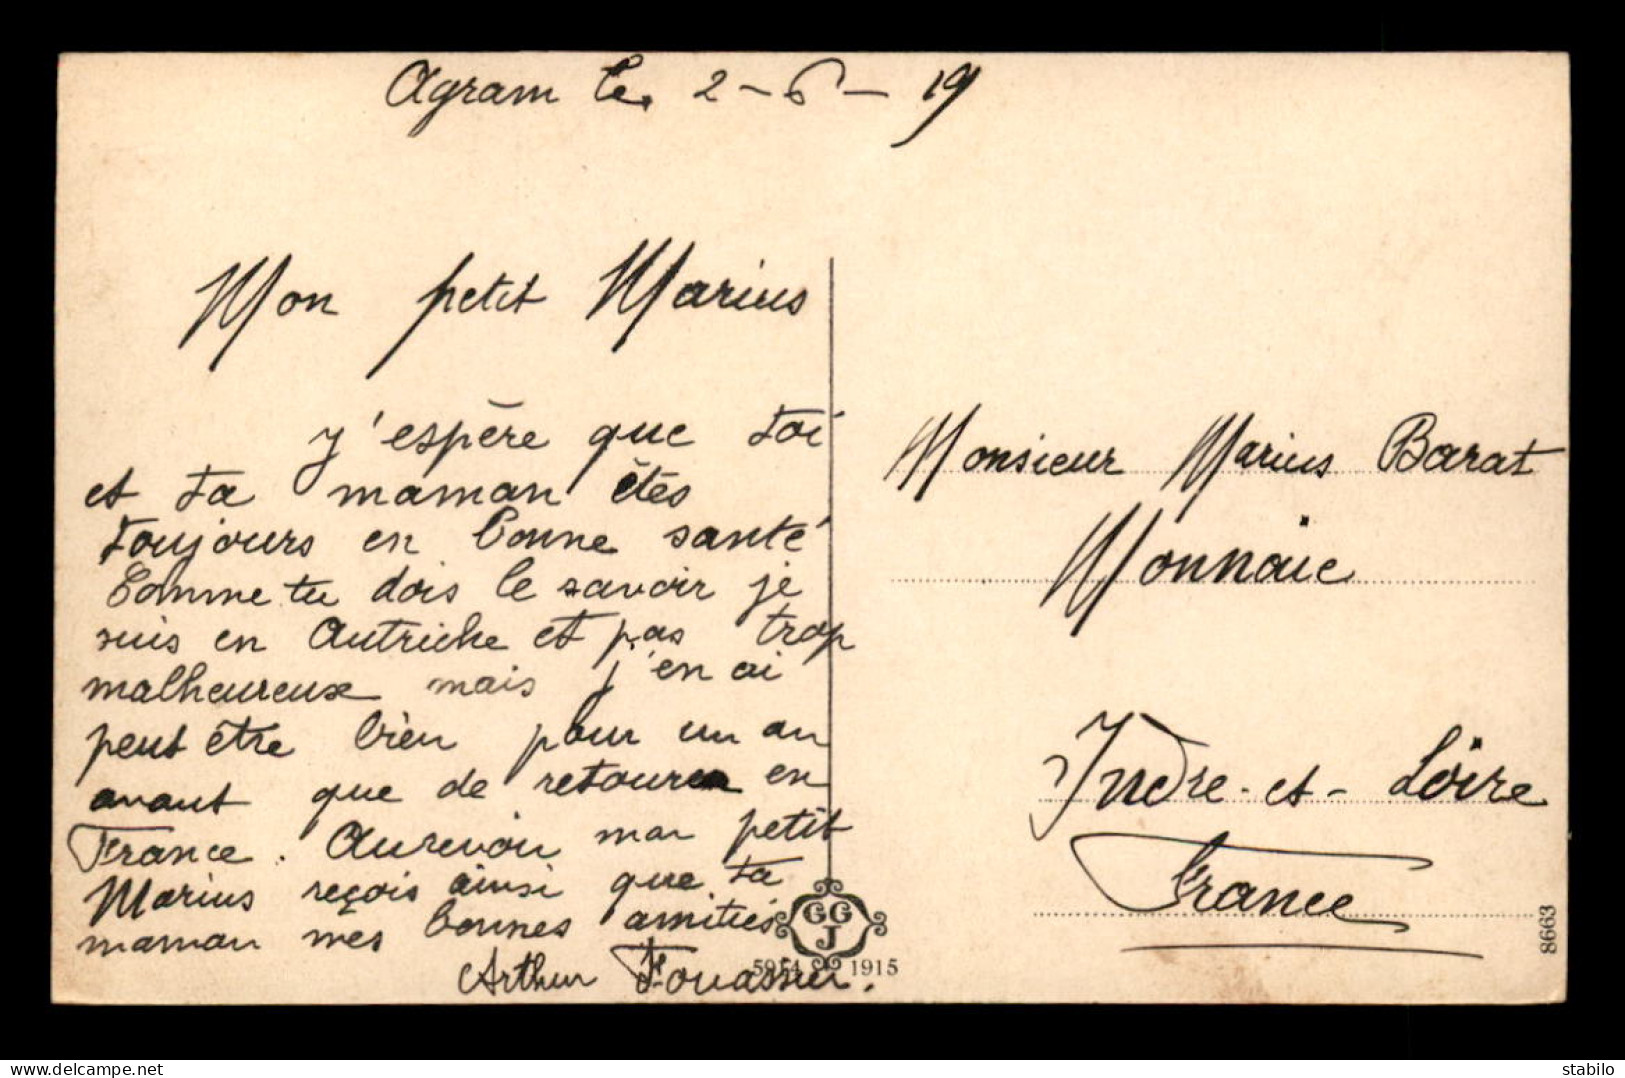 Agram le, 2-6-19
Mon petit Marius
j'espère que toi
et ta maman êtes
toujours en bonne santé
Comme tu dois le savoir je
suis en Autriche et pas trop
malheureux mais j'en ai
peut être bien pour un an
avant que de retourner en
France. Aurevoir mon petit
Marius reçois ainsi que ta
maman mes bonnes amitiés
Arthur Fouassier.
Monsieur Marius Barat
Monnaie
Indre-et-Loire
France
GGJ
5954 1915
8663
stabilo
www.delcampe.net